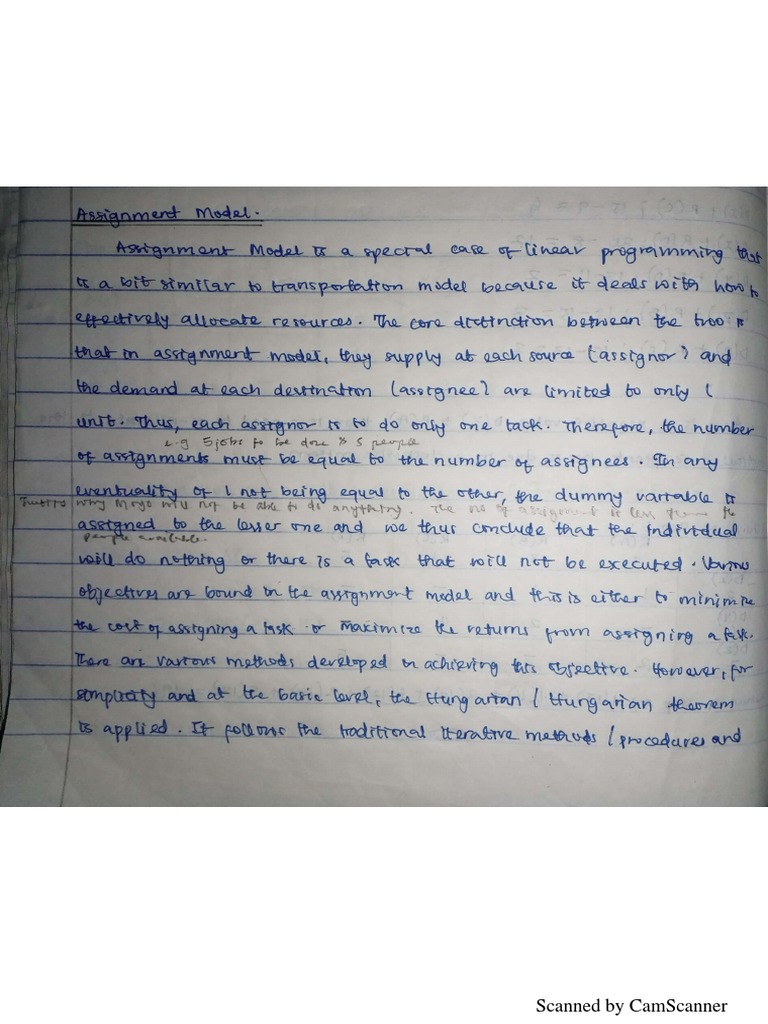 Assignment Model.
Assignment Model is a special case of linear programming that
is a bit similar to transportation model because it deals with how to
effectively allocate resources. The core distinction between the two is
that in assignment model, they supply at each source (assignor) and
the demand at each destination (assignee) are limited to only 1
unit. Thus, each assignor is to do only one task. Therefore, the number
e.g 5 jobs to be done & 5 people
of assignments must be equal to the number of assignees. In any
eventuality of 1 not being equal to the other, the dummy variable is
why Moyo will not be able to do anything. The no of assignment is less than the
assigned to the lesser one and we thus conclude that the individual
people available.
will do nothing or there is a task that will not be executed. Various
objectives are bound in the assignment model and this is either to minimize
the cost of assigning a task or maximize the returns from assigning a task.
There are various methods developed in achieving this objective. However, for
simplicity and at the basic level, the Hungarian / Hungarian theorem
is applied. It follows the traditional iterative methods / procedures and
Scanned by CamScanner